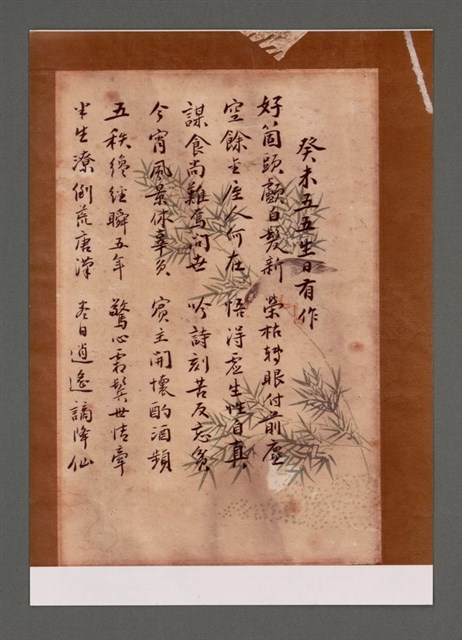 癸未五五生日有作
好箇頭顱白髮新 榮枯轉眼付前塵
空餘 主人何在 悟得虛生性自真
謀食尚難焉問世 吟詩刻苦反忘貧
今宵風景休辜負 賓主開懷酌酒頻
五秩纔經瞬五年 驚心霜鬢世情牽
半生潦倒荒唐漢 昔日逍遙謫降仙